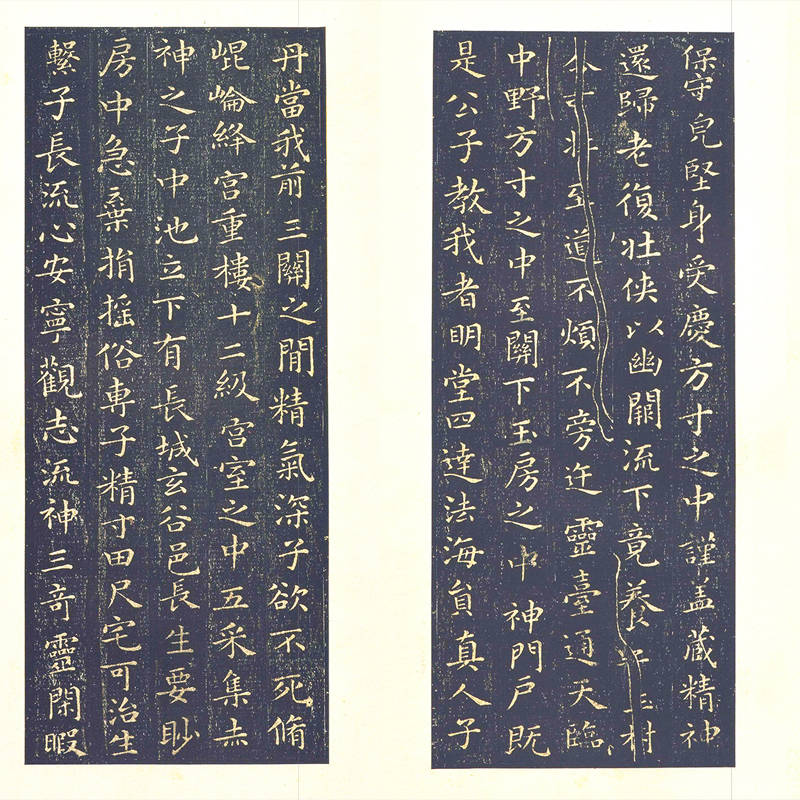 保守皃堅身受慶方寸之中謹盖藏精神
還歸老復壯俠以幽關流下竟養子玉樹
不可杖至道不煩不旁迕靈臺通天臨
中野方寸之中至關下玉房之中神門戶既
是公子教我者明堂四達法海負真人子
丹當我前三關之閒精氣深子欲不死脩
崐崘絳宮重樓十二級宮室之中五采集赤
神之子中池立下有長城玄谷邑長生要眇
房中急棄捐搖俗專子精寸田尺宅可治生
繫子長流心安寧觀志流神三奇靈閑暇